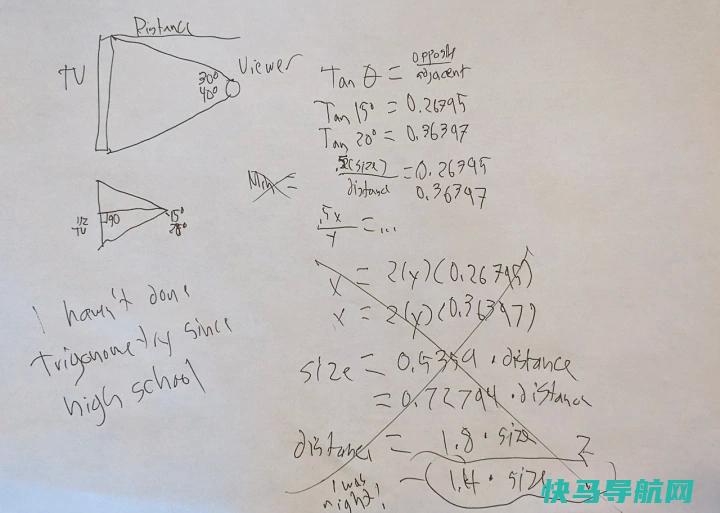 Distance
TV
Viewer
30°
40°
Tan θ = opposite
adjacent
Tan 15° = 0.26795
Tan 20° = 0.36397
Min =
.5(size) = 0.26395
distance 0.36397
.5x
y = ...
1/2
TV
90
15°
20°
x = 2(y)(0.26795)
x = 2(y)(0.36397)
I haven't done
trigonometry since
high school
size = 0.5359 · distance
= 0.72794 · distance
distance = 1.8 · size
I was
right!
1.4 · size
快马导航网